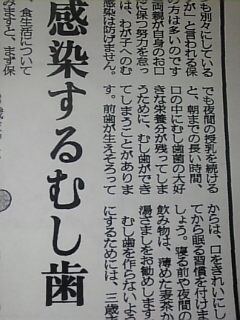 も別々にしている
が」と言われる保
方は多いのです
両親が自身のお口
に保つ努力を怠っ
は、わが子へのむ
感染は防げません。
でも夜間の授乳を続ける
と、朝までの長い時間、
口の中にむし歯菌の大好
きな栄養分が残ってしま
うために、むし歯ができ
てしまうことがありま
す。前歯が生えそろって
からは、口をきれいにし
てから眠る習慣を付けま
しょう。寝る前や夜間の
飲み物は、薄めた麦茶か
湯さましをお勧めします
むし歯を作らないよう
にするためには、三歳
感染するむし歯
食生活について
みますと、まず保